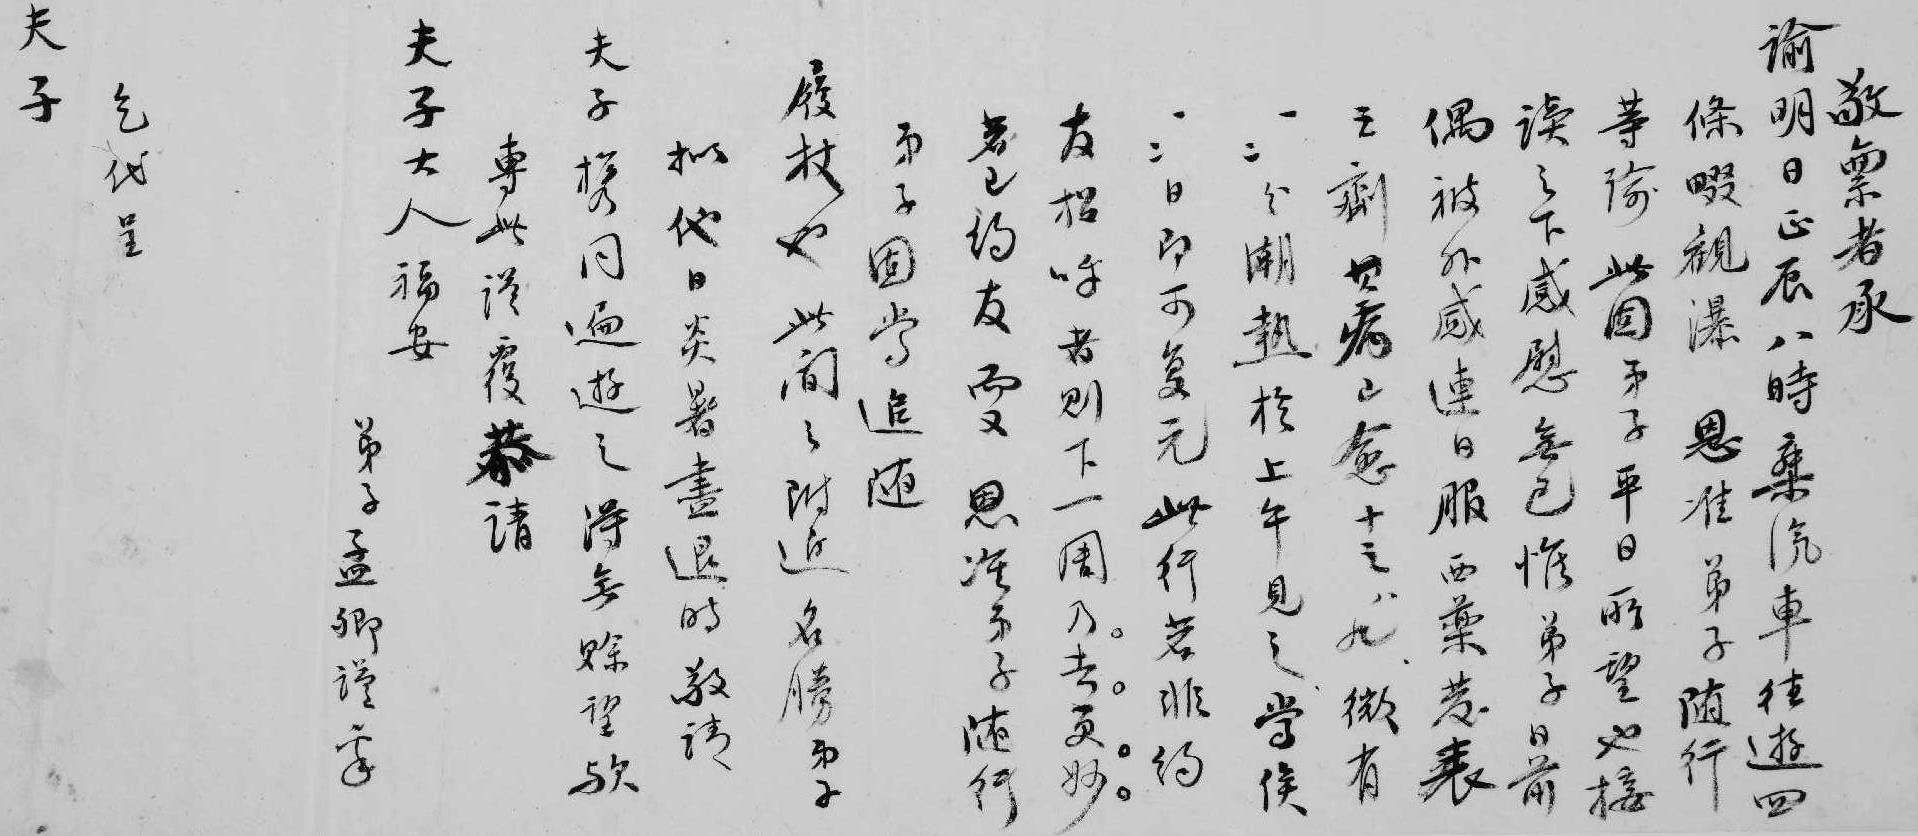 敬稟者承
諭明日正辰八時乘汽車往遊四
條畷観瀑 恩准弟子随行
等諭此固弟子平日所望也接
讀之下感慰無已惟弟子日前
偶被外感連日服西藥發表
之劑其病已愈十之八九微有
一二分潮熱於上午見之當俟
一二日即可复元此行若非約
友招呼者則下一周乃去更妙
若已約友而又 恩准弟子随行
弟子固當追随
履杖也此間之附近名勝弟子
擬他日炎暑盡退時敬請
夫子携同遍遊之得無賒望欤
專此謹覆恭請
夫子大人福安
弟子孟卿謹稟
乞代呈
夫子